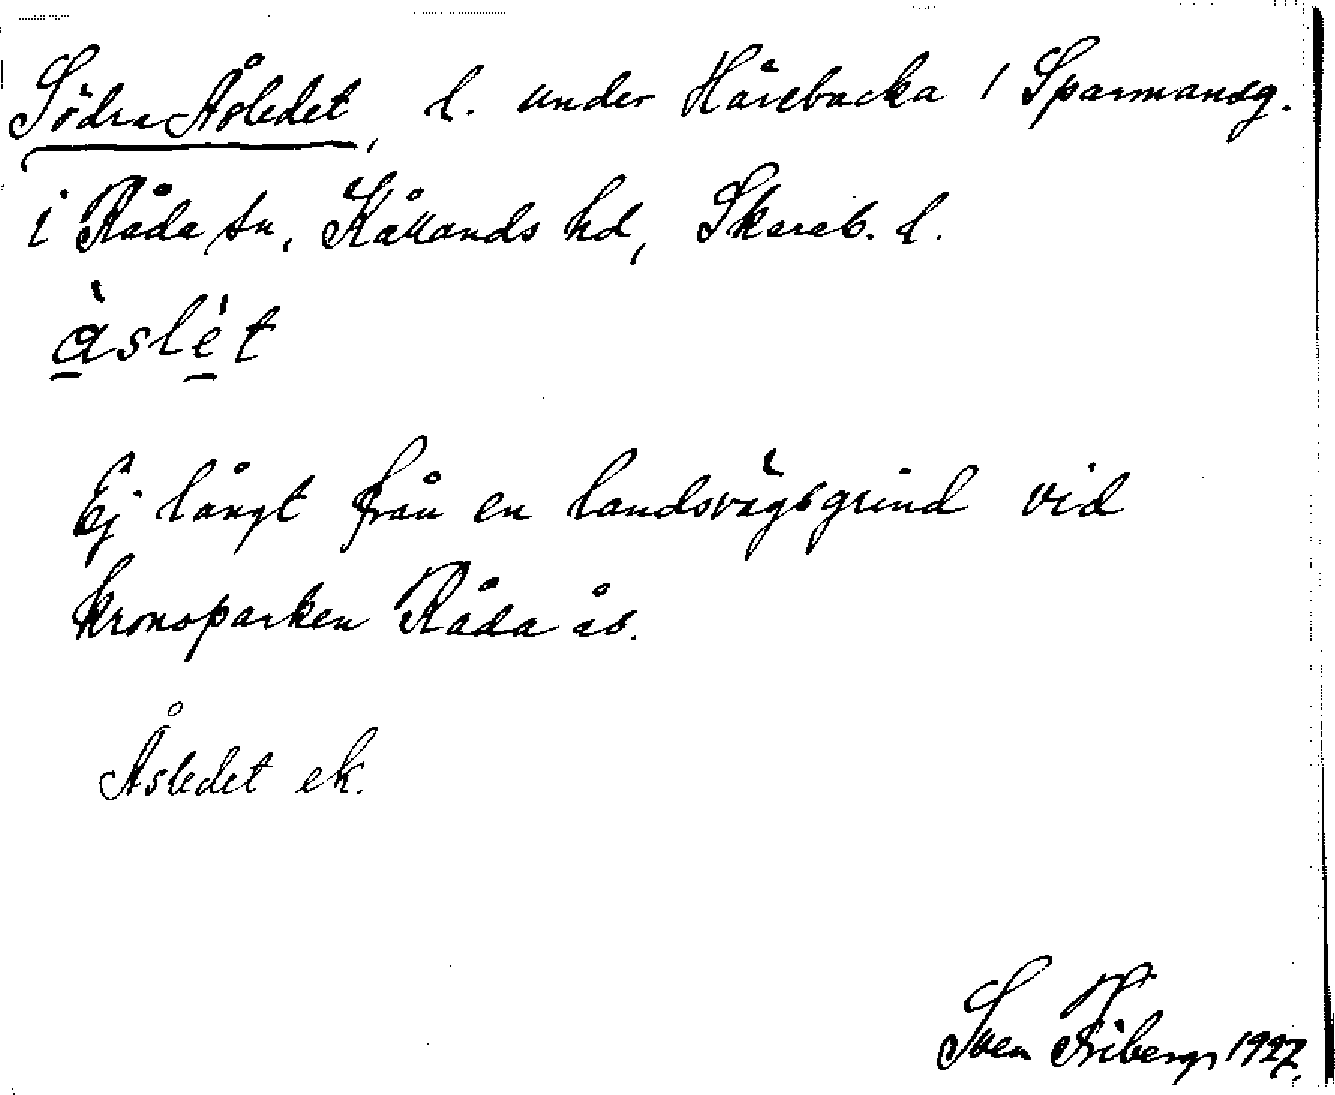 Södra Åsledet, l. under Hårebacka 1 Sparmansg.
i Råda sn, Kållands hd, Skarab. l.
àslét
Ej långt från en landsvägsgrind vid
kronoparken Råda ås.
Åsledet ek.
Sven Friberg 1927.